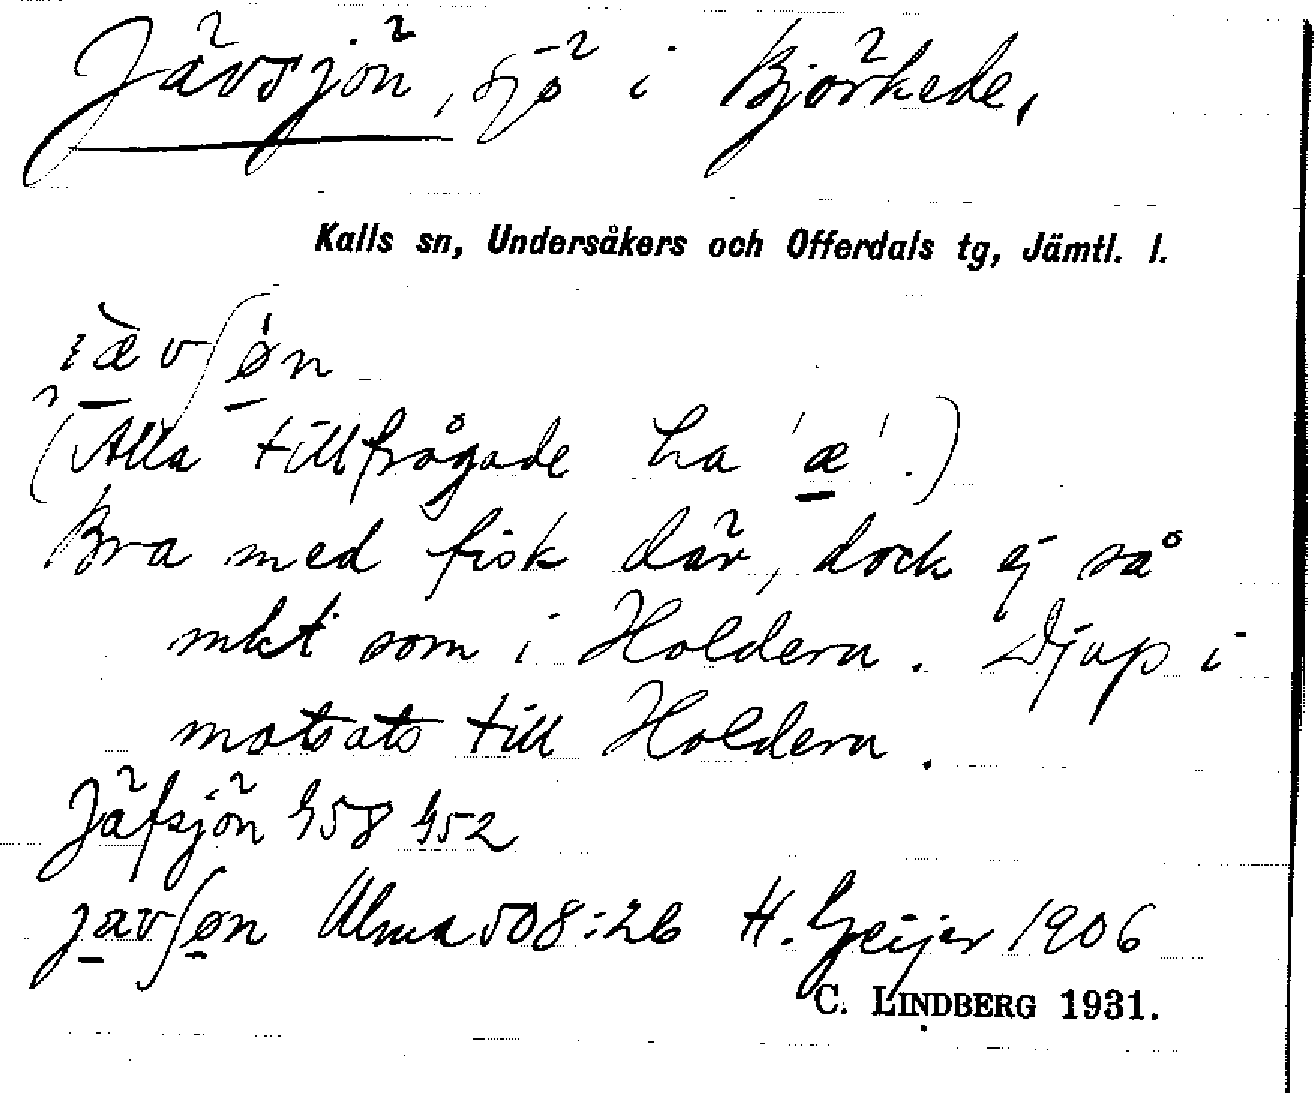 Jävsjön, sjö i Björkede,
Kalls sn, Undersåkers och Offerdals tg, Jämtl. l.
(Alla tillfrågade ha 'æ'.)
Bra med fisk där, dock ej så
mkt som i Holdern. Djup i
motsats till Holdern.
Jäfsjön
javʃøn Ulma 508:26 H. Geijer 1906
C. LINDBERG 1931.